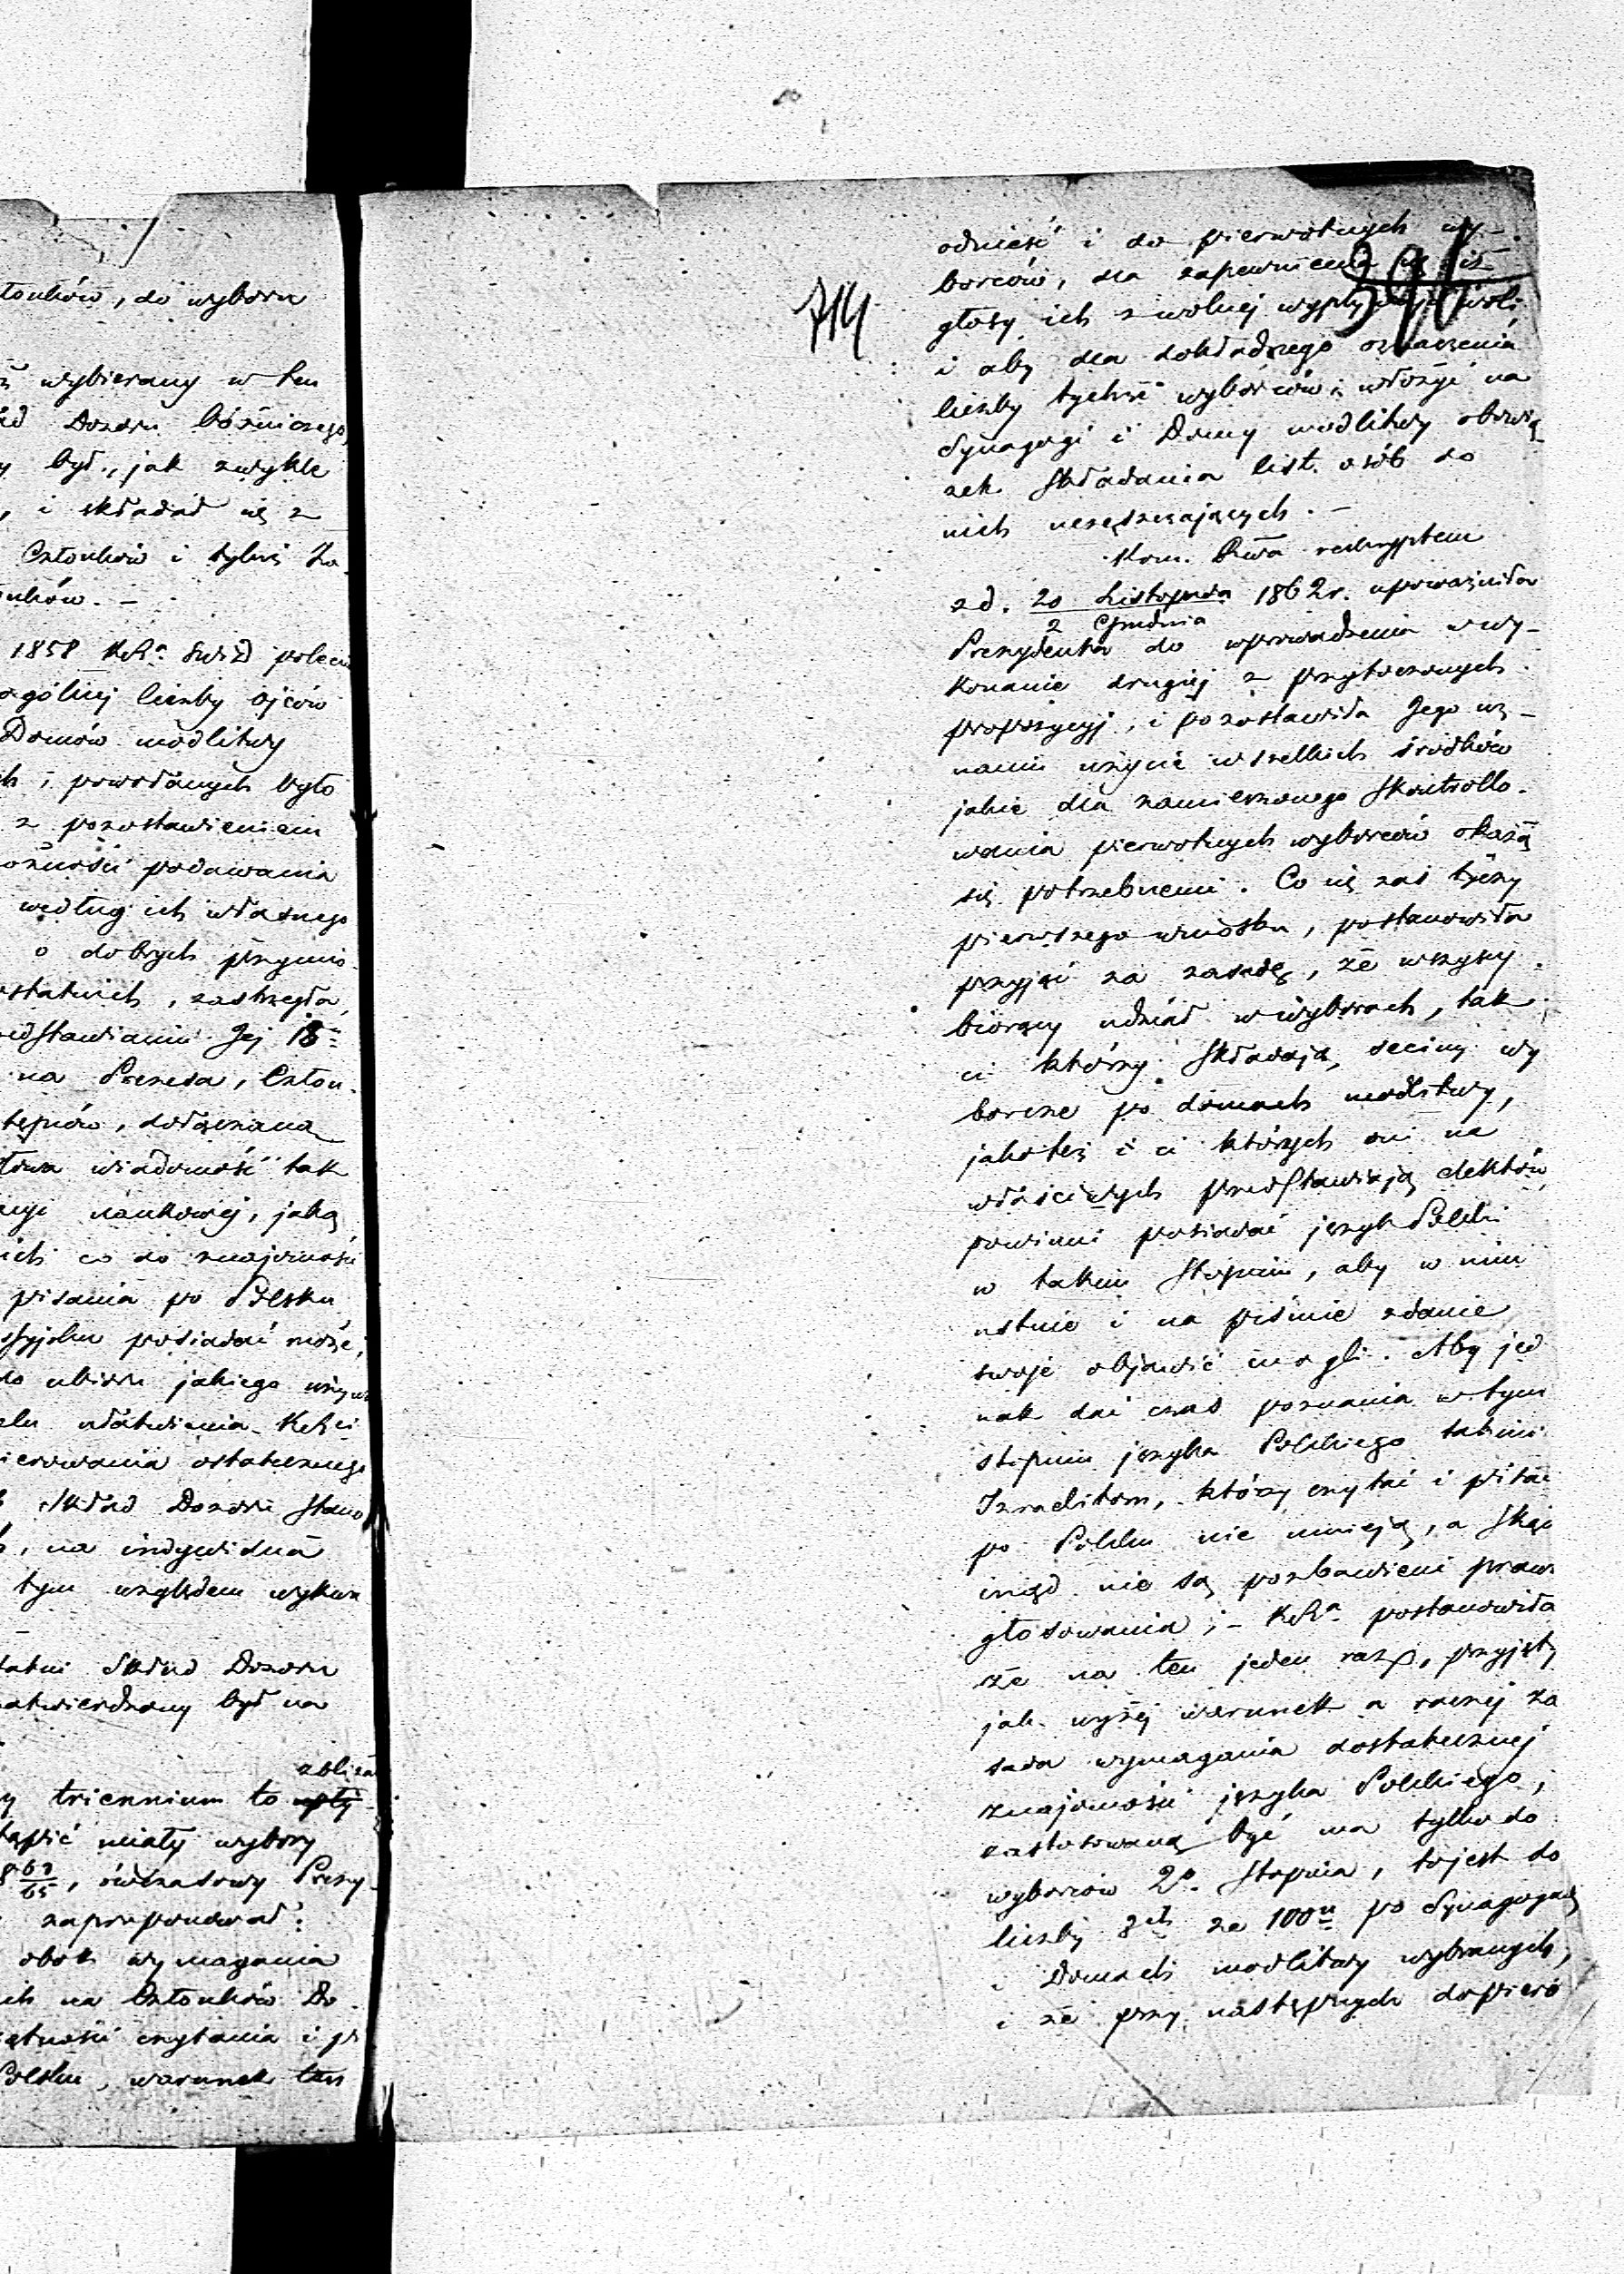 tonków, do wyboru
wybierany w ten
Dozoru bóżniczego,
był, jak zwykle
, i składał się z
Członków i tyluż Za-
nków. –
1858 KRz. polec
ogólnej liczby ojców
Domów modlitwy
i powołanych było
z pozostawieniem
ożności podawania
według ich własnego
o dobrych przymio-
ostatnich, zastrzegła
edstawianiu Jej 18
na Prezesa, Człon-
tępców, dołączana
wiadomość tak
naukowej, jaką
ich co do znajomości
pisania po Polsku
posiadać może,
do ubioru jakiego używa
ułatwienia
ierowania ostatecznego
Skład Dozoru stano
, na indywidua
tym względem wykwa
tatni Skład Dozoru
zatwierdzony był na
zbliża
triennium to upły-
tąpić miały wybory
, ówczasowy Prezy-
zaproponował:
obok wymagania
ich na Członków Do-
ętności czytania i pi
Polsku, warunek ten
714
391
odnieść i do pierwotnych wy-
borców, dla zapewnienia się iż
głosy ich z wolnej wypływają woli
i aby dla dokładnego oznaczenia
liczby tychże wyborców, włożyć na
Synagogi i Domy modlitwy obowią-
zek składania list osób do
nich uczęszczających. –
Kom. Rząa reskryptem
z d. 20 Listopada 1862 r. upoważniła
2 Grudnia
Prezydenta do wprowadzenia w wy-
konanie drugiej z przytoczonych
propozycyj, i pozostawiła Jego uz-
naniu użycie wszelkich środków
jakie dla zamierzonego skontrollo-
wania pierwotnych wyborców okażą
się potrzebnemi. Co się zaś tyczy
pierwszego wniosku, postanowiła
przyjąć za zasadę, że wszyscy
biorący udział w wyborach, tak
ci którzy składają seciny wy
borcze po domach modlitwy,
jakoteż i ci których oni na
właściwych przedstawiają elektorów
powinni posiadać język Polski
w takim stopniu, aby w nim
ustnie i na piśmie zdanie
swoje objawić mogli. Aby jed
nak dać czas poznania w tym
stopniu języka Polskiego takim
Izraelitom, którzy czytać i pisać
po Polsku nie umieją, a skąd
inąd nie są pozbawieni prawa
głosowania; – KRza postanowiła
że na ten jeden raz, przyjęty
jak wyżej warunek a raczej za
sada wymagania dostatecznej
znajomości języka Polskiego,
zastosowaną być ma tylko do
wyborców 2o Stopnia, to jest do
liczby 3ch ze 100u po Synagogach
i Domach modlitwy wybranych,
i że przy następnych dopiero